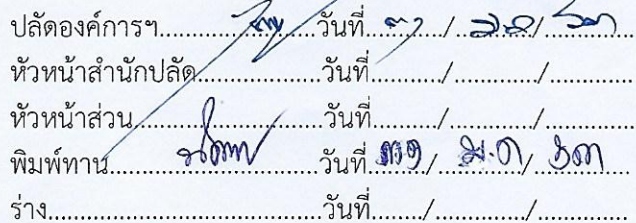 ปลัดองค์การฯ....................วันที่......./............/............
หัวหน้าสำนักปลัด....................วันที่......./............/............
หัวหน้าส่วน....................วันที่......./............/............
พิมพ์ทาน....................วันที่......./ ม.ค /............
ร่าง....................วันที่......./............/............